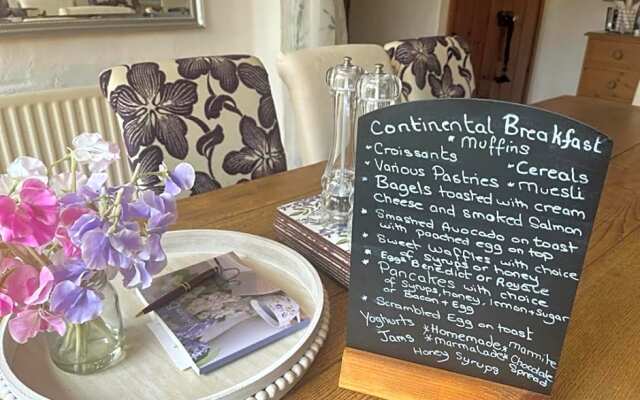 Continental Breakfast
* Muffins
* Croissants
* Cereals
* Various Pastries * Muesli
* Bagels toasted with cream
Cheese and smoked Salmon
* Smashed Avocado on toast
with poached egg on top
* Sweet Waffles with choice
of Syrups or honey
* Eggs Benedict or Royale
* Pancakes with choice
of syrups, honey, lemon + sugar
or Bacon + Egg
* Scrambled Egg on toast
Yoghurts * Homemade * Marmite
Jams * marmalade * Chocolate
Honey Syrups Spread